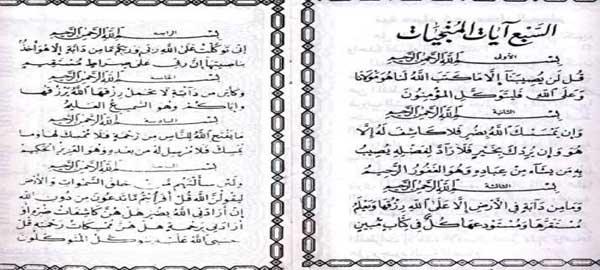 السبع آيات المنجيات
الأولى بسم الله الرحمن الرحيم
قل لن يصيبنا إلا ما كتب الله لنا هو مولانا
وعلى الله فليتوكل المؤمنون
الثانية بسم الله الرحمن الرحيم
وإن يمسسك الله بضر فلا كاشف له إلا
هو وإن يردك بخير فلا راد لفضله يصيب
به من يشاء من عباده وهو الغفور الرحيم
الثالثة بسم الله الرحمن الرحيم
وما من دابة في الأرض إلا على الله رزقها ويعلم
مستقرها ومستودعها كل في كتاب مبين
الرابعة بسم الله الرحمن الرحيم
إني توكلت على الله ربي وربكم ما من دابة إلا هو آخذ
بناصيتها إن ربي على صراط مستقيم
الخامسة بسم الله الرحمن الرحيم
وكأين من دابة لا تحمل رزقها الله يرزقها
وإياكم وهو السميع العليم
السادسة بسم الله الرحمن الرحيم
ما يفتح الله للناس من رحمة فلا ممسك لها وما
يمسك فلا مرسل له من بعده وهو العزيز الحكيم
السابعة بسم الله الرحمن الرحيم
ولئن سألتهم من خلق السموات والأرض
ليقولن الله قل أفرأيتم ما تدعون من دون الله
إن أرادني الله بضر هل هن كاشفات ضره أو
أرادني برحمة هل هن ممسكات رحمته قل
حسبي الله عليه يتوكل المتوكلون